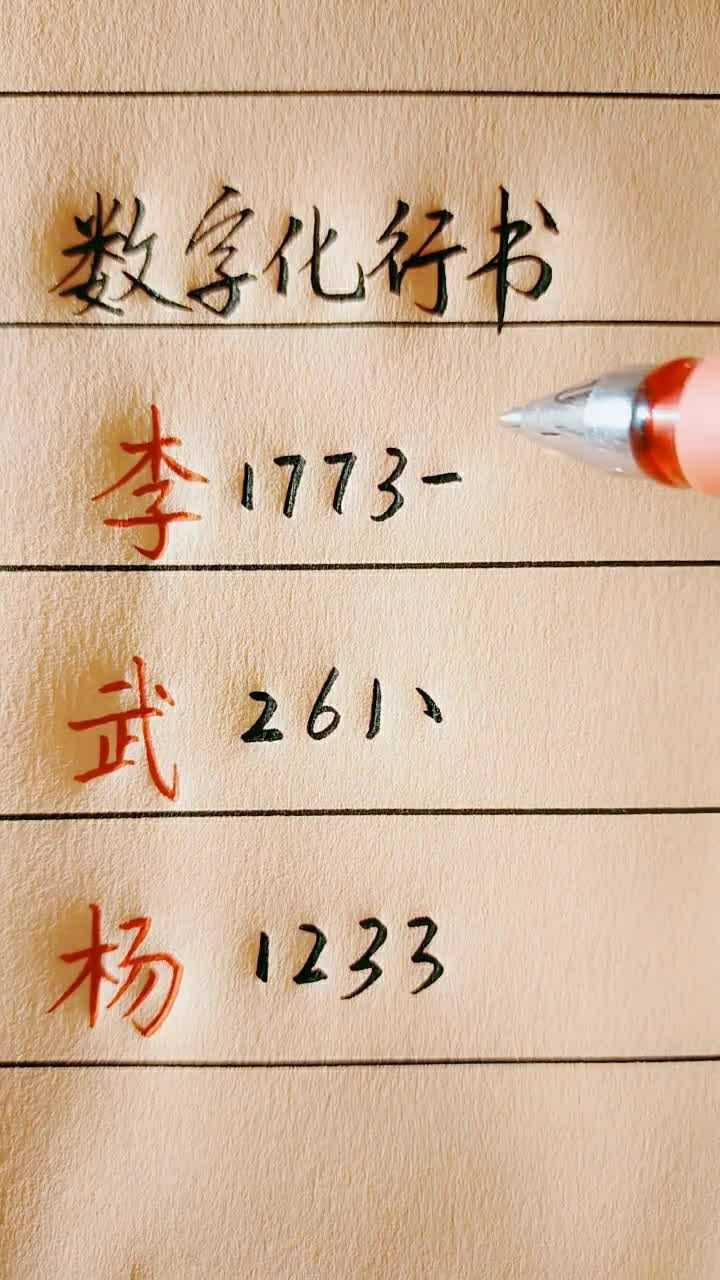 数字化行书
李 1773一
武 261丶
杨 1233